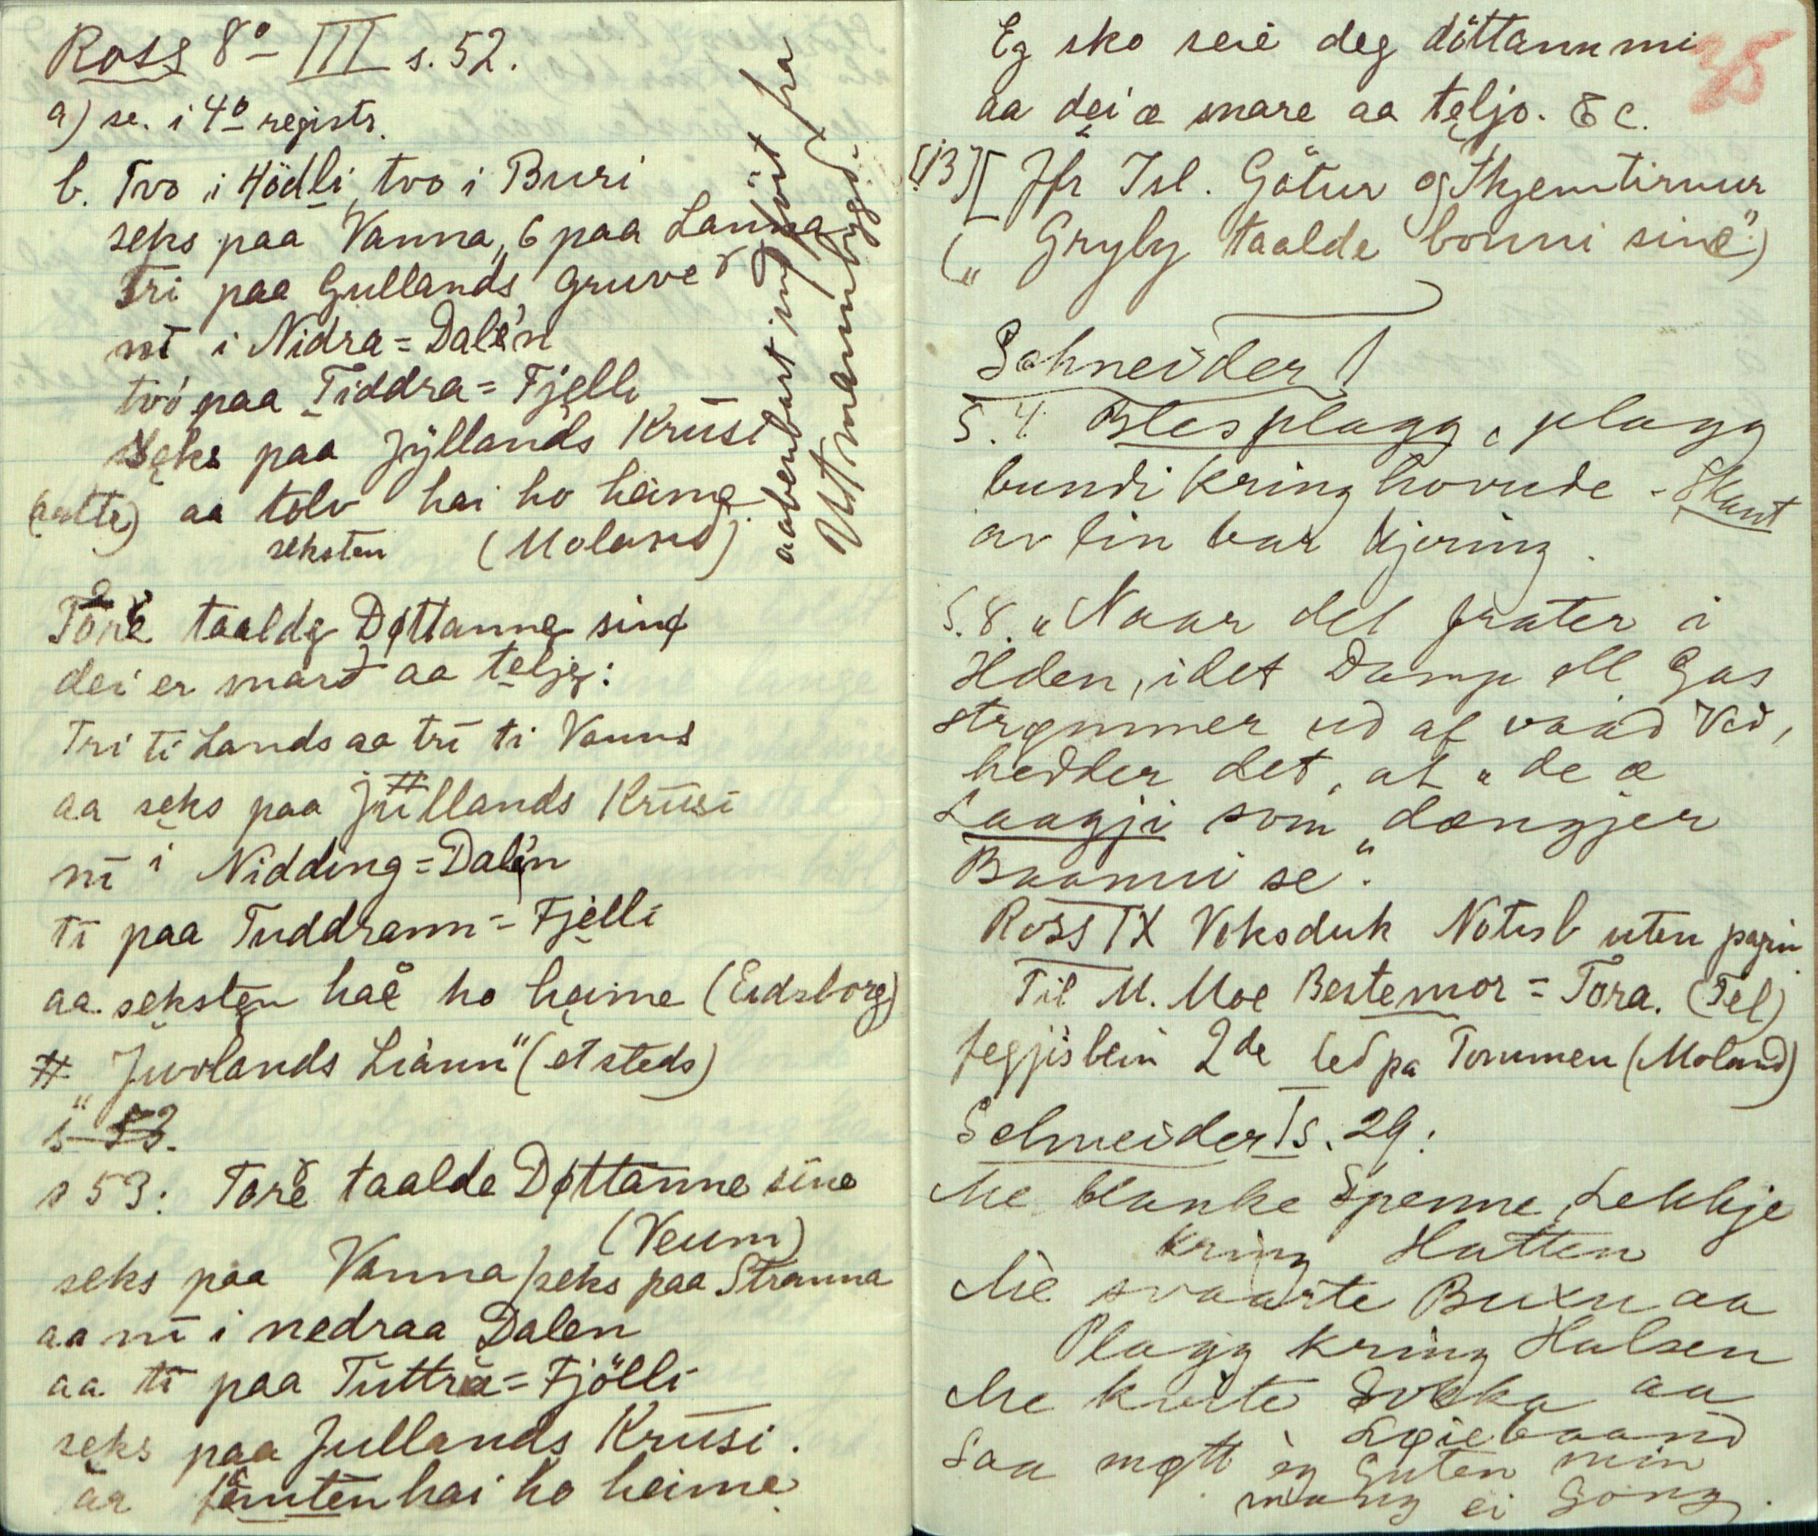 Ross 8º – III s. 52.
a) se. i 4º registr.
b. Tvo i Hödli, tvo i Buri
seks paa Vanna, 6 paa Lanna
Tri paa Gullands gruve
ni i Nidra = Dale'n
tvo paa Tiddra = Fjelli
Seks paa Jyllands Krusi
(aatte) aa tolv hai ho heime
seksten (Moland)
aabenbart indført fra
Utmannbygd
Tore taalde Døttanne sine
dei er mare aa telje:
Tri ti Lands aa tri ti Vanns
aa seks paa Jullands Krusi
ni i Nidding = Dale'n
ti paa Tuddrann = Fjelli
aa seksten hae ho heime (Eidsborg)
# „Juvlands Liann" (et steds)
s 53.
s 53: Tore taalde Døttanne sine
(Veum)
seks paa Vanna / seks paa Stranna
aa ni i nedraa Dalen
aa ti paa Tuttra = Fjölli
seks paa Jullands Krusi.
ar femten hai ho heime
35
Eg sko seie deg döttann mi
aa dei æ mare aa teljo. &c.
[13] [Jfr Isl. Götur og Skjemtirnur
(„Gryby taalde bonni sine")
Schneider I
S. 4. Blesplagg, plagg
bundi kring hovude - Skaut
av lin bar Kjering.
S. 8. „Naar det frater i
Ilden, idet Damp ell Gas
strømmer ud af vaad Ved,
hedder det, at „de æ
Laagji som dængjer
Baanni se".
Ross IX Voksduk Notisb uten pagin
Til M. Moe Bestemor = Tora. (Tel)
feggjisbein 2de led pa Tommen (Moland)
Schneider I s. 29:
Me blanke Spenne, Lekkje
kring Hatten
Me svaarte Buxu aa
Plagg kring Halsen
Me kvite Sokka aa
Løiebaand
Saa møtt eg Guten min
mang ei Gong.